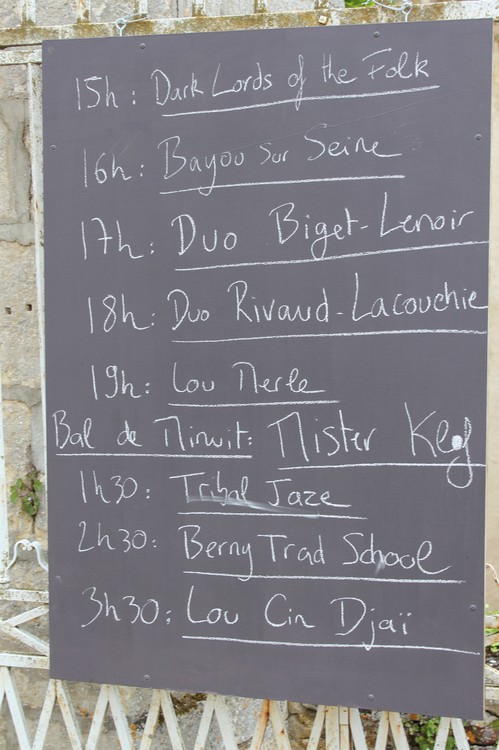 15h : Dark Lords of the Folk
16h : Bayou sur Seine
17h : Duo Biget-Lenoir
18h : Duo Rivaud-Lacouchie
19h : Lou Merle
Bal de Minuit : Mister Kley
1h30 : Tribal Jaze
2h30 : Berny Trad School
3h30 : Lou Cin Djaï